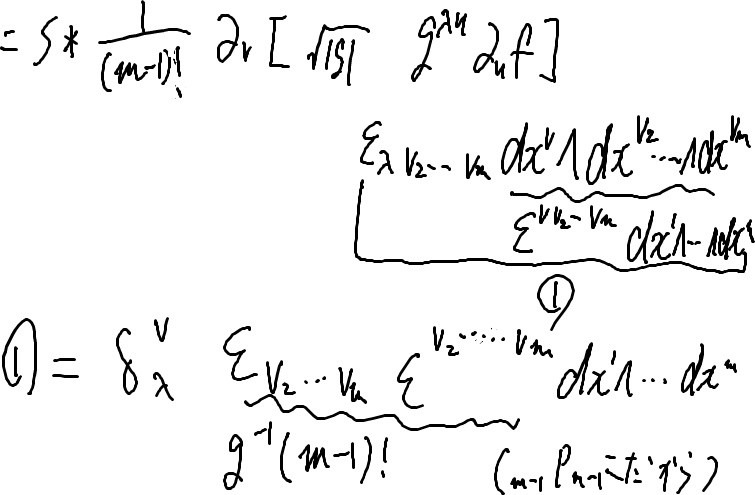 = S * 1/(m-1)! ∂ν [ √|g| g^{λμ} ∂μ f ]
ε_{λ ν2 ... νm} dx^ν ∧ dx^{ν2} ... ∧ dx^{νm}
ε^{ν ν2 ... νm} dx^1 ∧ ... ∧ dx^m
①
① = δ^ν_λ ε_{ν2 ... νm} ε^{ν2 ... νm} dx^1 ∧ ... dx^m
g^{-1} (m-1)! (_{m-1}P_{m-1}